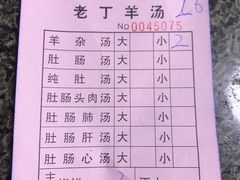 老丁羊汤 26
No 0045075
羊杂汤 大 小 2
肚肠汤 大 小
纯肚汤 大 小
肚肠头肉汤 大 小
肚肠肺汤 大 小
肚肠肝汤 大 小
肚肠心汤 大 小